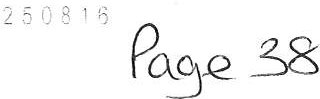 250816
Page 38